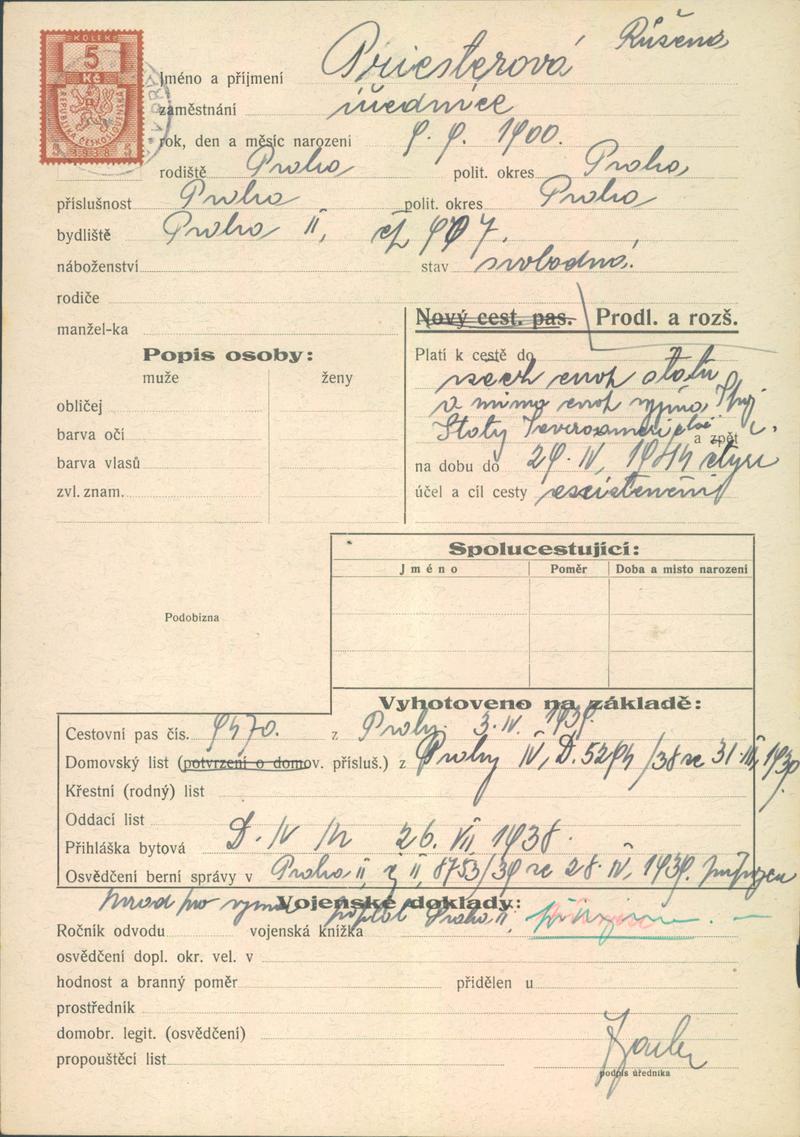 KOLEK
5
Kč
REPUBLIKA ČESKOSLOVENSKÁ
5 1938 5
Jméno a příjmení Priesterová Růžena
zaměstnání úřednice
rok, den a měsíc narození 9. 9. 1900.
rodiště Praha polit. okres Praha
příslušnost Praha polit. okres Praha
bydliště Praha II, čp 907.
náboženství stav svobodná.
rodiče
manžel-ka
Nový cest. pas. Prodl. a rozš.
Popis osoby:
muže ženy
obličej
barva očí
barva vlasů
zvl. znam.
Platí k cestě do
všech evrop států
a mimo evrop vyjma Spoj
Státy Severoamerické
a zpět
na dobu do 29. IV. 1944 čtyři
účel a cíl cesty existenční
Spolucestující:
Jméno Poměr Doba a místo narození
Podobizna
Vyhotoveno na základě:
Cestovní pas čís. 9470. z Prahy. 3. IV. 1939.
Domovský list (potvrzení o domov. přísluš.) z Prahy IV, D. 5294/38 ze 31. III. 1939
Křestní (rodný) list
Oddací list
Přihláška bytová D. IV 26. VII. 1938.
Osvědčení berní správy v Praha II, č II, 8753/39 ze 28. IV, 1939. připojen
Úřad pro vyměř poplat Praha II, připojeno.
Vojenské doklady:
Ročník odvodu vojenská knížka
osvědčení dopl. okr. vel. v
hodnost a branný poměr přidělen u
prostředník
domobr. legit. (osvědčení)
propouštěcí list
podpis úředníka